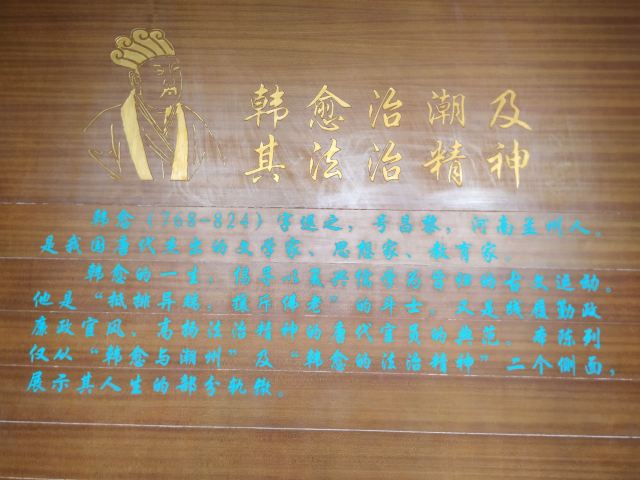 韩愈治潮及
其法治精神
韩愈(768-824)字退之,号昌黎,河南孟州人。
是我国唐代杰出的文学家、思想家、教育家。
韩愈的一生,倡导以复兴儒学为旨归的古文运动。
他是“抵排异端,攘斥佛老”的斗士。又是践履勤政
廉政官风,高扬法治精神的唐代官员的典范。本陈列
仅从“韩愈与潮州”及“韩愈的法治精神”二个侧面,
展示其人生的部分轨微。